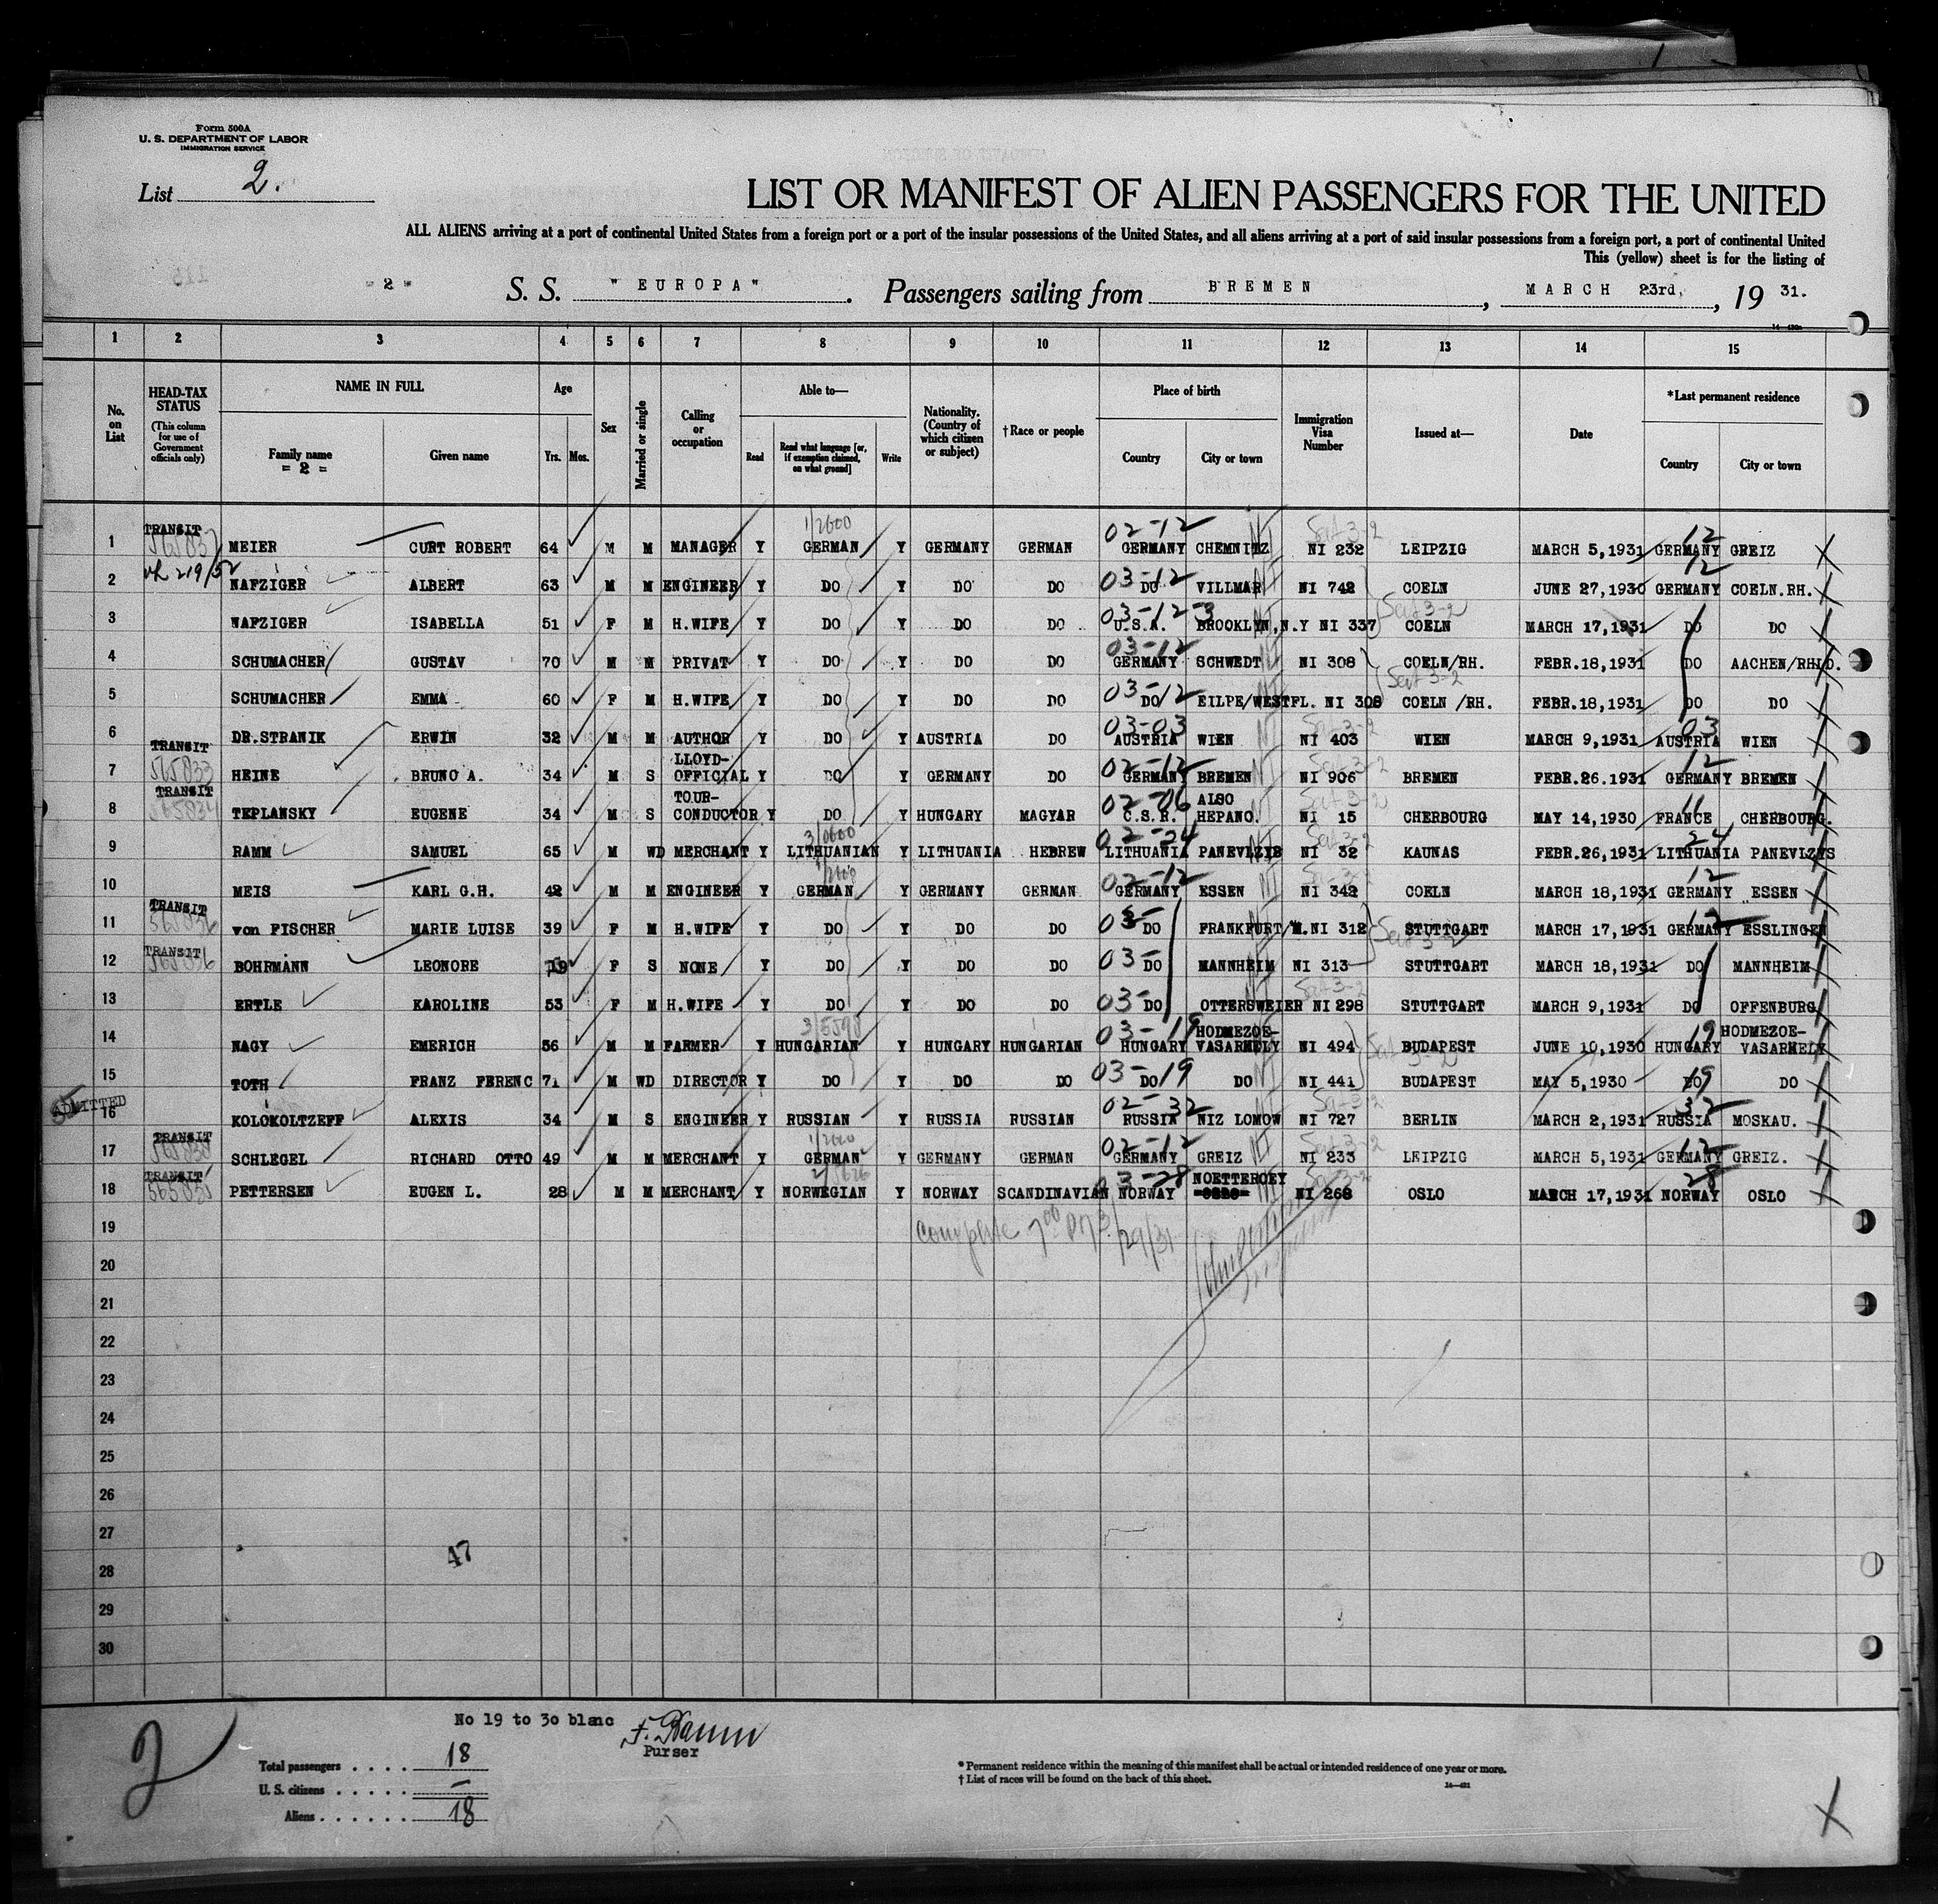 Form 500A
U. S. DEPARTMENT OF LABOR
IMMIGRATION SERVICE
List 2.
LIST OR MANIFEST OF ALIEN PASSENGERS FOR THE UNITED
ALL ALIENS arriving at a port of continental United States from a foreign port or a port of the insular possessions of the United States, and all aliens arriving at a port of said insular possessions from a foreign port, a port of continental United
This (yellow) sheet is for the listing of
- 2 - S. S. " EUROPA " . Passengers sailing from BREMEN , MARCH 23rd, , 19 31.
1 2 3 4 5 6 7 8 9 10 11 12 13 14 15
No. on List
HEAD-TAX STATUS (This column for use of Government officials only)
NAME IN FULL
Family name = 2 =
Given name
Age Yrs. Mos.
Sex
Married or single
Calling or occupation
Able to—
Read
Read what language [or, if exemption claimed, on what ground]
Write
Nationality. (Country of which citizen or subject)
† Race or people
Place of birth
Country City or town
Immigration Visa Number
Issued at—
Date
*Last permanent residence
Country City or town
1 TRANSIT MEIER CURT ROBERT 64 M M MANAGER Y GERMAN Y GERMANY GERMAN 02-12 GERMANY CHEMNITZ NI 232 LEIPZIG MARCH 5,1931 12 GERMANY GREIZ
2 NAFZIGER ALBERT 63 M M ENGINEER Y DO Y DO DO 03-12 DO VILLMAR NI 742 COELN JUNE 27,1930 12 GERMANY COELN.RH.
3 NAFZIGER ISABELLA 51 F M H.WIFE Y DO Y DO DO 03-12-3 U.S.A. BROOKLYN,N.Y NI 337 COELN MARCH 17,1931 DO DO
4 SCHUMACHER GUSTAV 70 M M PRIVAT Y DO Y DO DO 03-12 GERMANY SCHWEDT NI 308 COELN/RH. FEBR.18,1931 DO AACHEN/RHLD.
5 SCHUMACHER EMMA 60 F M H.WIFE Y DO Y DO DO 03-12 DO EILPE/WESTFL. NI 308 COELN /RH. FEBR.18,1931 DO DO
6 DR.STRANIK ERWIN 32 M M AUTHOR Y DO Y AUSTRIA DO 03-03 AUSTRIA WIEN NI 403 WIEN MARCH 9,1931 03 AUSTRIA WIEN
7 TRANSIT 565833 HEINE BRUNO A. 34 M S LLOYD-OFFICIAL Y DO Y GERMANY DO 02-12 GERMANY BREMEN NI 906 BREMEN FEBR.26.1931 12 GERMANY BREMEN
8 TRANSIT 565834 TEPLANSKY EUGENE 34 M S TOUR-CONDUCTOR Y DO Y HUNGARY MAGYAR 02-06 C.S.R. ALSO HEPANO. NI 15 CHERBOURG MAY 14,1930 11 FRANCE CHERBOURG.
9 RAMM SAMUEL 65 M WD MERCHANT Y LITHUANIAN Y LITHUANIA HEBREW 02-24 LITHUANIA PANEVLZIS NI 32 KAUNAS FEBR.26,1931 24 LITHUANIA PANEVLZYS
10 MEIS KARL G.H. 42 M M ENGINEER Y GERMAN Y GERMANY GERMAN 02-12 GERMANY ESSEN NI 342 COELN MARCH 18,1931 12 GERMANY ESSEN
11 TRANSIT 565836 von FISCHER MARIE LUISE 39 F M H.WIFE Y DO Y DO DO 03- DO FRANKFURT M. NI 312 STUTTGART MARCH 17,1931 12 GERMANY ESSLINGEN
12 TRANSIT BOHRMANN LEONORE 19 F S NONE Y DO Y DO DO 03- DO MANNHEIM NI 313 STUTTGART MARCH 18,1931 DO MANNHEIM
13 ERTLE KAROLINE 53 F M H.WIFE Y DO Y DO DO 03- DO OTTERSWEIER NI 298 STUTTGART MARCH 9,1931 DO OFFENBURG
14 NAGY EMERICH 56 M M FARMER Y HUNGARIAN Y HUNGARY HUNGARIAN 03-19 HUNGARY HODMEZOE-VASARHELY NI 494 BUDAPEST JUNE 10,1930 19 HUNGARY HODMEZOE-VASARHELY
15 TOTH FRANZ FERENC 71 M WD DIRECTOR Y DO Y DO DO 03-19 DO DO NI 441 BUDAPEST MAY 5,1930 19 DO DO
ADMITTED
16 KOLOKOLTZEFF ALEXIS 34 M S ENGINEER Y RUSSIAN Y RUSSIA RUSSIAN 02-32 RUSSIA NIZ LOMOW NI 727 BERLIN MARCH 2,1931 32 RUSSIA MOSKAU.
17 TRANSIT SCHLEGEL RICHARD OTTO 49 M M MERCHANT Y GERMAN Y GERMANY GERMAN 02-12 GERMANY GREIZ NI 233 LEIPZIG MARCH 5,1931 12 GERMANY GREIZ.
18 TRANSIT 565835 PETTERSEN EUGEN L. 28 M M MERCHANT Y NORWEGIAN Y NORWAY SCANDINAVIAN 03-28 NORWAY NOETTEROEY NI 268 OSLO MARCH 17,1931 28 NORWAY OSLO
19 complete 7 00 pm 3/29/31
20
21
22
23
24
25
26
27
28
29
30
47
No 19 to 30 blanc
Purser
2
Total passengers . . . . 18
U. S. citizens . . . . . —
Aliens . . . . . . 18
* Permanent residence within the meaning of this manifest shall be actual or intended residence of one year or more.
† List of races will be found on the back of this sheet.